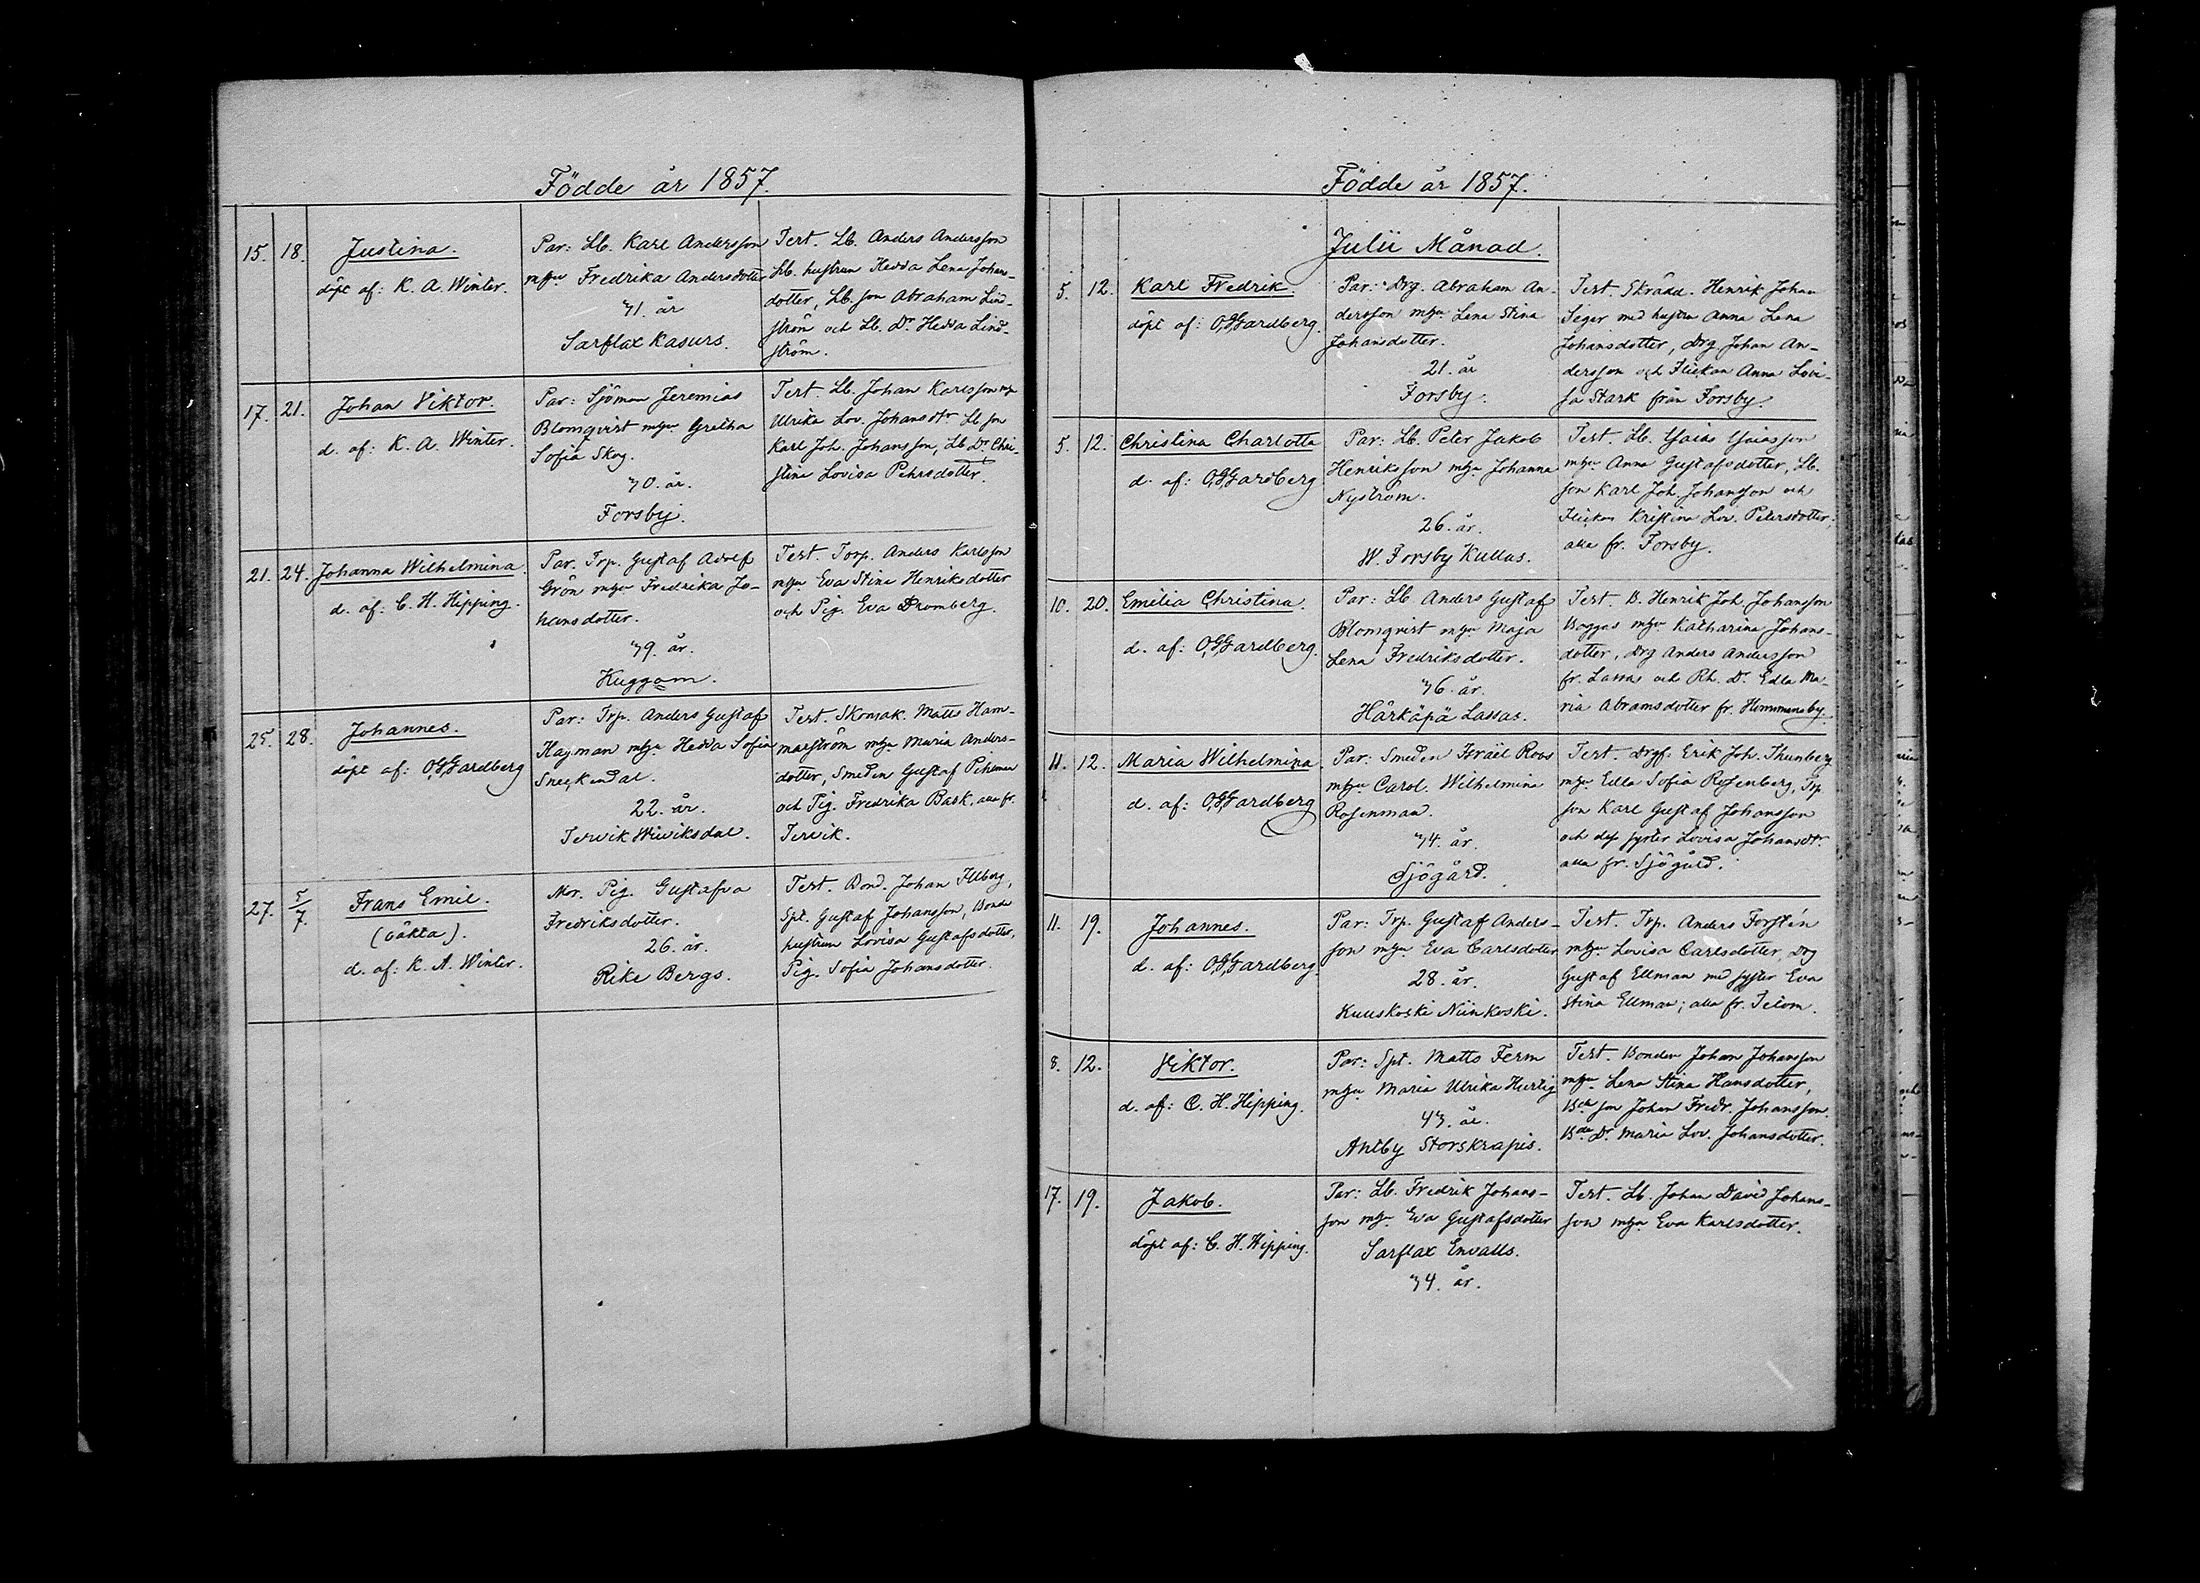 Födde år 1857.
15. 18. Justina.
döpt af: K. A. Winter.
Par: Lb. Karl Andersson
mhu Fredrika Andersdotter
41. år
Sarflax Kasurs.
Test. Lb. Anders Andersson
Lb. hustrun Hedda Lena Johans-
dotter, Lb. son Abraham Lind-
ström och Lb. Dr Hedda Lind-
ström.
17. 21. Johan Viktor.
d. af: K. A. Winter.
Par: Sjöman Jeremias
Blomqvist mhu Gretha
Sofia Skog.
40. år.
Forsby.
Test. Lb. Johan Karlsson mhu
Ulrika Lov. Johansdtr Lb son
Karl Joh. Johansson, Lb Dr Chri-
stina Lovisa Pehrsdotter.
21. 24. Johanna Wilhelmina.
d. af: C. H. Hipping.
Par. Trp. Gustaf Adolf
Grön mhu Fredrika Jo-
hansdotter.
39. år.
Kuggom.
Test. Torp. Anders Karlsson
mhu Eva Stina Henriksdotter
och Pig. Eva Dromberg.
25. 28. Johannes.
döpt af: O. G. Gardberg
Par: Trp. Anders Gustaf
Hayman mhu Hedda Sofia
Sneckendal.
22. år.
Tervik Wiviksdal.
Test. Skomak. Matts Ham-
marström mhu Maria Anders-
dotter, Smeden Gustaf
och Pig. Fredrika Bask, alla fr.
Tervik.
27. 5/7. Frans Emil.
(oäkta).
d. af: K. A. Winter.
Mor. Pig. Gustafva
Fredriksdotter.
26. år.
Rike Bergs.
Test. Bond. Johan Illberg,
Spt. Gustaf Johansson, Bonde
hustrun Lovisa Gustafsdotter,
Pig. Sofia Johansdotter.
Födde år 1857.
Julii Månad.
5. 12. Karl Fredrik.
döpt af: O. G. Gardberg.
Par: Drg. Abraham An-
dersson mhu Lena Stina
Johansdotter.
21. år
Forsby.
Test. Skrädd. Henrik Johan
Seger med hustru Anna Lena
Johansdotter, Drg Johan An-
dersson och Flickan Anna Lovi-
sa Stark från Forsby.
5. 12. Christina Charlotta
d. af: O. G. Gardberg
Par: Lb. Peter Jakob
Henriksson mhu Johanna
Nyström.
26. år.
W. Forsby Kullas.
Test. Lb. Esaias Esaiasson
mhu Anna Gustafsdotter, Lb.
son Karl Joh. Johansson och
Flickan Kristina Lov. Petersdotter.
alla fr. Forsby.
10. 20. Emilia Christina.
d. af: O. G. Gardberg.
Par: Lb Anders Gustaf
Blomqvist mhu Maja
Lena Fredriksdotter.
36. år.
Hårkäpä Lassas.
Test. B. Henrik Joh. Johansson
Boggas mhu Katharina Johans-
dotter, Drg Anders Andersson
fr. Lassas och Rh. Dr. Edla Ma-
ria Abramsdotter fr. Hommansby.
11. 12. Maria Wilhelmina.
d. af: O. G. Gardberg
Par: Smeden Israël Roos
mhu Carol. Wilhelmina
Rosenman.
34. år.
Sjögård.
Test. Drgf. Erik Joh. Thunberg
mhu Edla Sofia Rosenberg, Trp
son Karl Gustaf Johansson
och dess syster Lovisa Johansdtr.
alla fr. Sjögård.
11. 19. Johannes.
d. af: O. G. Gardberg.
Par: Trp. Gustaf Anders-
son mhu Eva Carlsdotter
28. år.
Kuuskoski Niinkoski.
Test. Trp. Anders Forstén
mhu Lovisa Carlsdotter, Drg
Gustaf Ellman med syster Eva
Stina Ellman; alla fr. Tetom.
8. 12. Viktor.
d. af: C. H. Hipping.
Par: Spt. Matts Ferm
mhu Maria Ulrika Hurtig
43. år.
Antby Storskrapis.
Test. Bonden Johan Johansson
mhu Lena Stina Hansdotter,
Bde son Johan Fredr. Johansson.
Bde Dr Maria Lov. Johansdotter.
17. 19. Jakob.
döpt af: C. H. Hipping.
Par: Lb. Fredrik Johans-
son mhu Eva Gustafsdotter
Sarflax Envalls.
34. år.
Test. Lb. Johan David Johans-
son mhu Eva Karlsdotter.